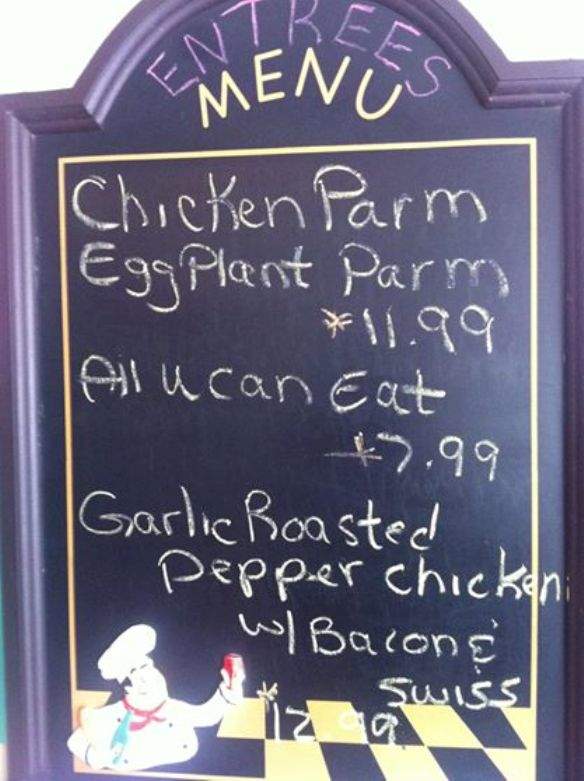 ENTREES
MENU
Chicken Parm
EggPlant Parm
*11.99
All u can Eat
*7.99
Garlic Roasted
Pepper chicken
w/ Bacon &
swiss
*12.99